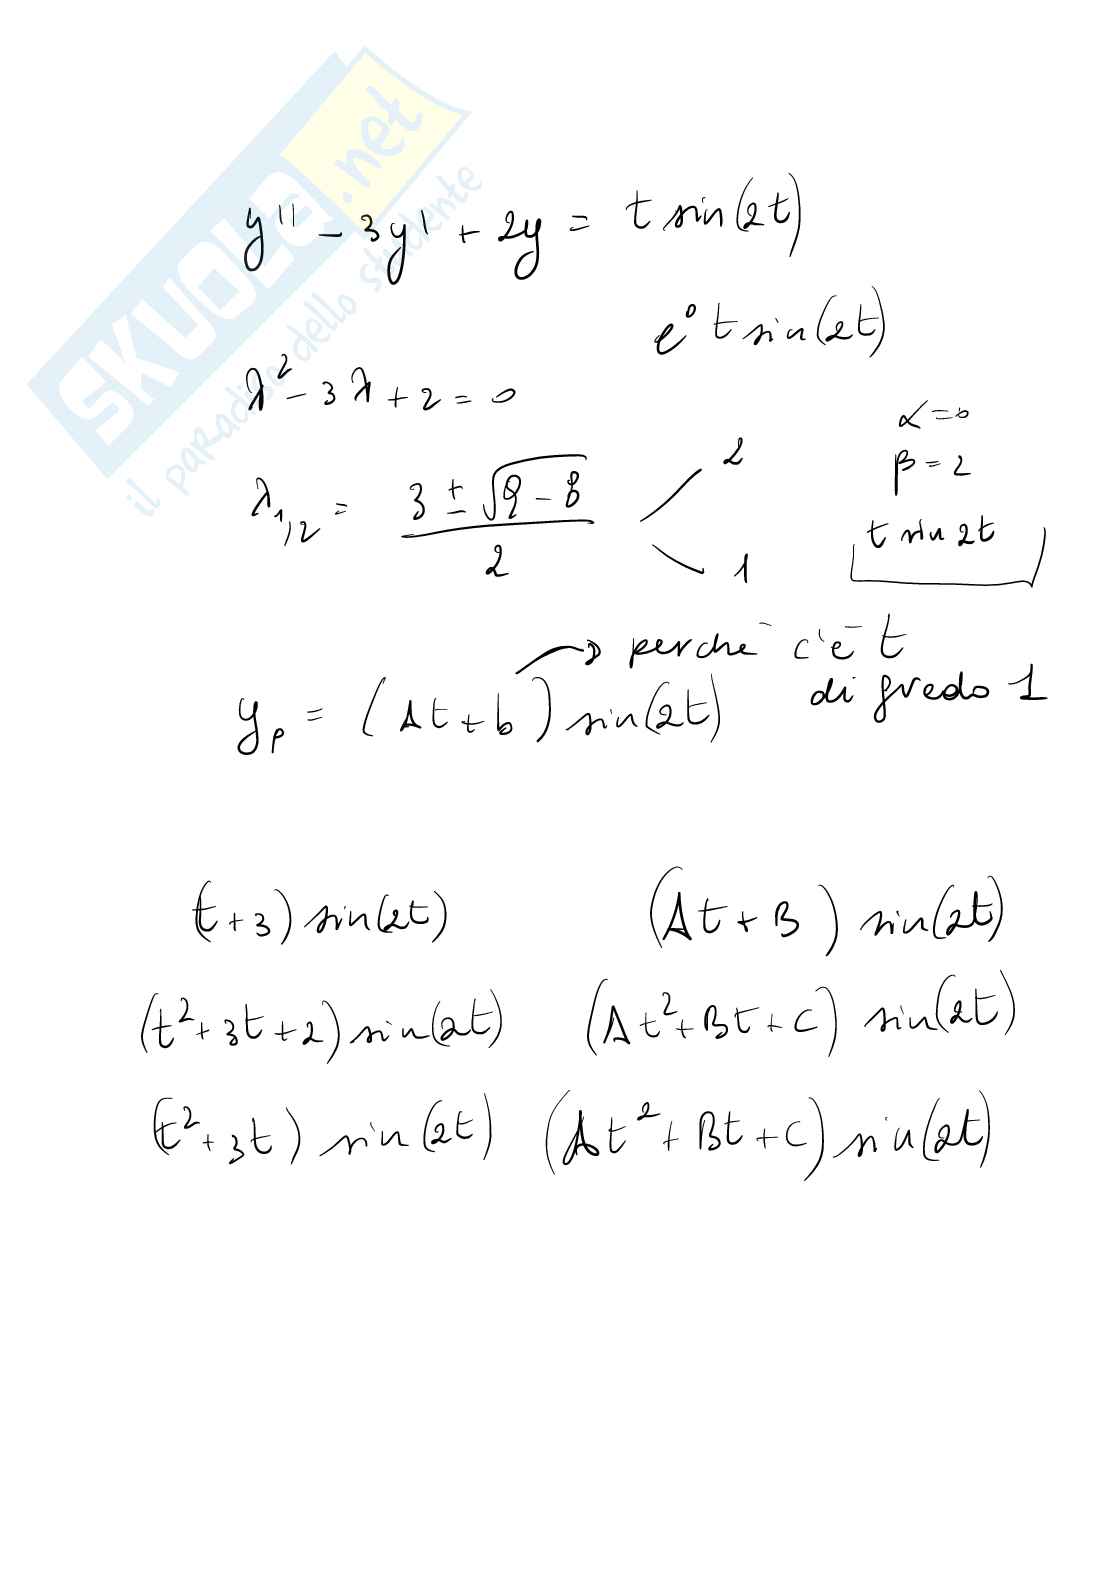 SKUOLA.net
il paradiso dello studente
y'' - 3y' + 2y = t sin(2t)
e⁰ t sin(2t)
λ² - 3λ + 2 = 0
α = 0
β = 2
t sin 2t
λ₁,₂ = (3 ± √(9 - 8)) / 2
2
1
perchè c'è t
di grado 1
yₚ = (At + b) sin(2t)
(t + 3) sin(2t) (At + B) sin(2t)
(t² + 3t + 2) sin(2t) (At² + Bt + C) sin(2t)
(t² + 3t) sin(2t) (At² + Bt + C) sin(2t)